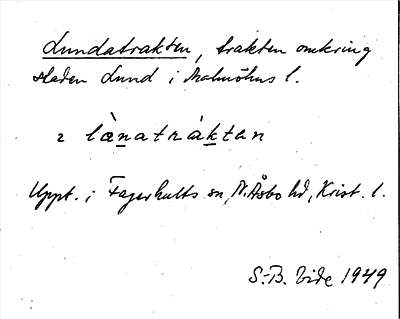 Lundatrakten, trakten omkring
staden Lund i Malmöhus l.
2 lænatráktan
Uppt. i Fagerhults sn, N. Åsbo hd, Krist. l.
S.-B. Vide 1949